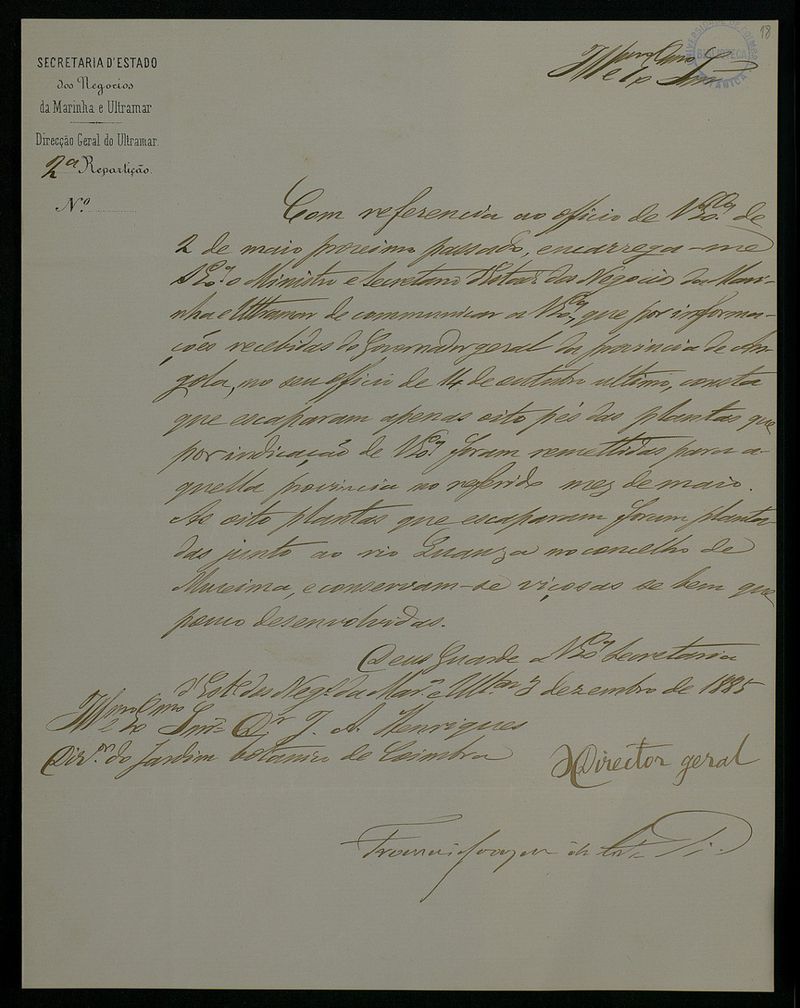 18.
UNIVERSIDADE DE COIMBRA
BIBLIOTECA
BOTANICA
SECRETARIA D'ESTADO
dos Negocios
da Marinha e Ultramar
Direcção Geral do Ultramar
2ª Repartição.
N.º
Illmo Exmo Snr
Com referencia ao officio de V. Exª de
2 de maio proximo passado, encarrega-me
S. Exª o Ministro e Secretario d'Estado dos Negocios da Mari-
nha e Ultramar de communicar a V. Exª, que por informa-
ções recebidas do Governador geral da provincia de An-
gola, no seu officio de 14 de outubro ultimo, consta
que escaparam apenas oito pés das plantas que
por indicação de V. Exª foram remettidas para a-
quella provincia no referido mez de maio.
As oito plantas que escaparam foram planta-
das junto ao rio Quanza no concelho de
Muxima, e conservam-se viçosas se bem que
pouco desenvolvidas.
Deus Guarde a V. Exª Secretaria
d'Estº dos Negº da Marª e Ultrª 3 dezembro de 1885
Illmo Exmo Snr. Dr. J. A. Henriques
Dir.or do Jardim botanico de Coimbra
O Director geral
Francisco Joaquim da Costa e Silva